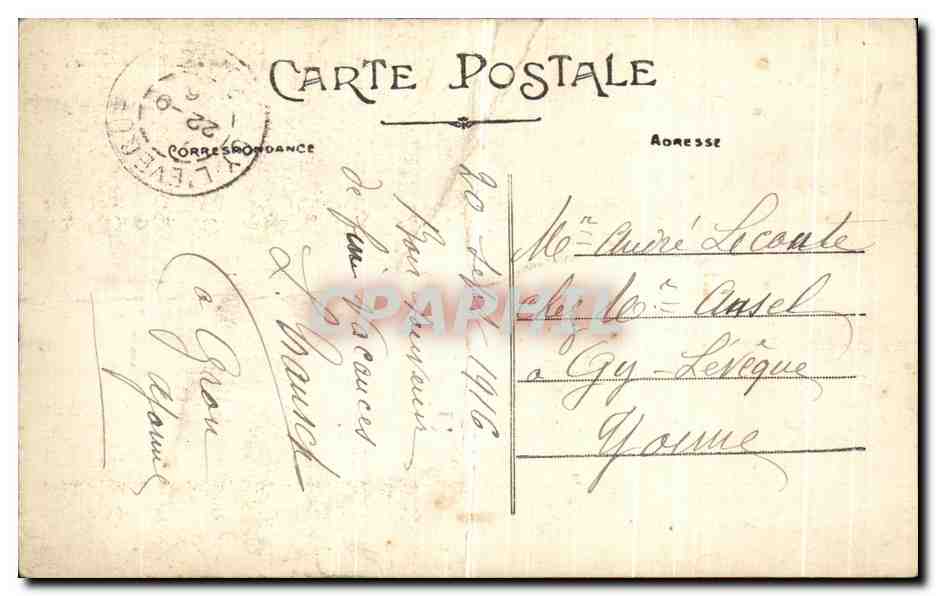 CARTE POSTALE
CORRESPONDANCE
ADRESSE
GY-L'EVEQUE
22 - 9
20 Sept 1916
Bon souvenir
de fine vacances
L.
a Gron
Yonne
Mr André Leconte
chez Mr Ansel
a Gy-Lévêque
Yonne
CPARPHIL